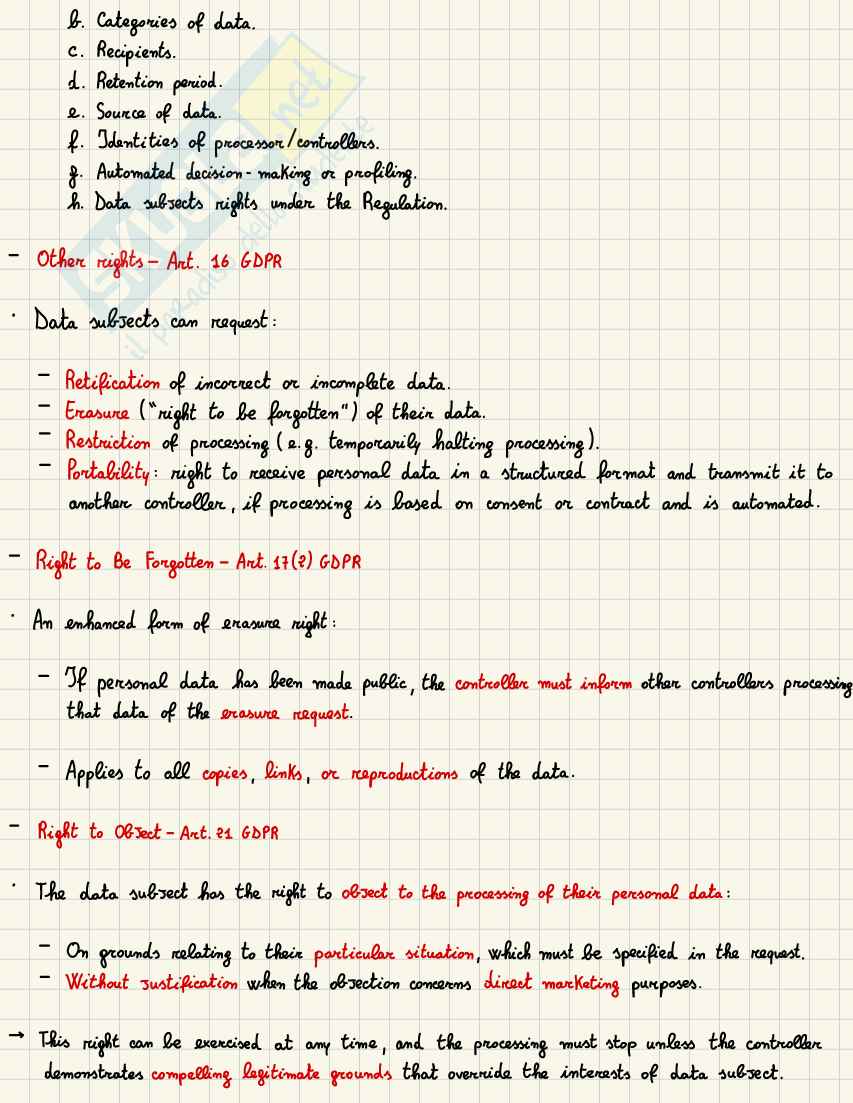 b. Categories of data.
c. Recipients.
d. Retention period.
e. Source of data.
f. Identities of processor/controllers.
g. Automated decision-making or profiling.
h. Data subjects rights under the Regulation.
- Other rights - Art. 16 GDPR
· Data subjects can request:
- Retification of incorrect or incomplete data.
- Erasure ("right to be forgotten") of their data.
- Restriction of processing (e.g. temporarily halting processing).
- Portability: right to receive personal data in a structured format and transmit it to
another controller, if processing is based on consent or contract and is automated.
- Right to Be Forgotten - Art. 17(2) GDPR
· An enhanced form of erasure right:
- If personal data has been made public, the controller must inform other controllers processing
that data of the erasure request.
- Applies to all copies, links, or reproductions of the data.
- Right to Object - Art. 21 GDPR
· The data subject has the right to object to the processing of their personal data:
- On grounds relating to their particular situation, which must be specified in the request.
- Without justification when the objection concerns direct marketing purposes.
→ This right can be exercised at any time, and the processing must stop unless the controller
demonstrates compelling legitimate grounds that override the interests of data subject.